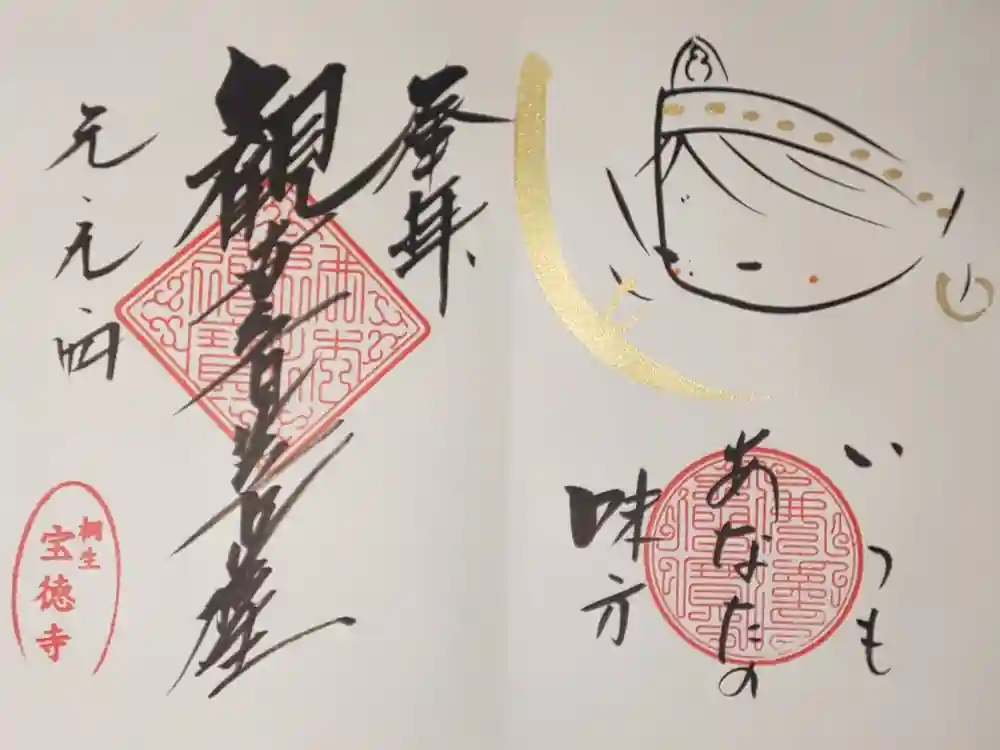 いつも
あなたの
味方
奉拝
観世音菩薩
元.元.四
桐生
宝徳寺